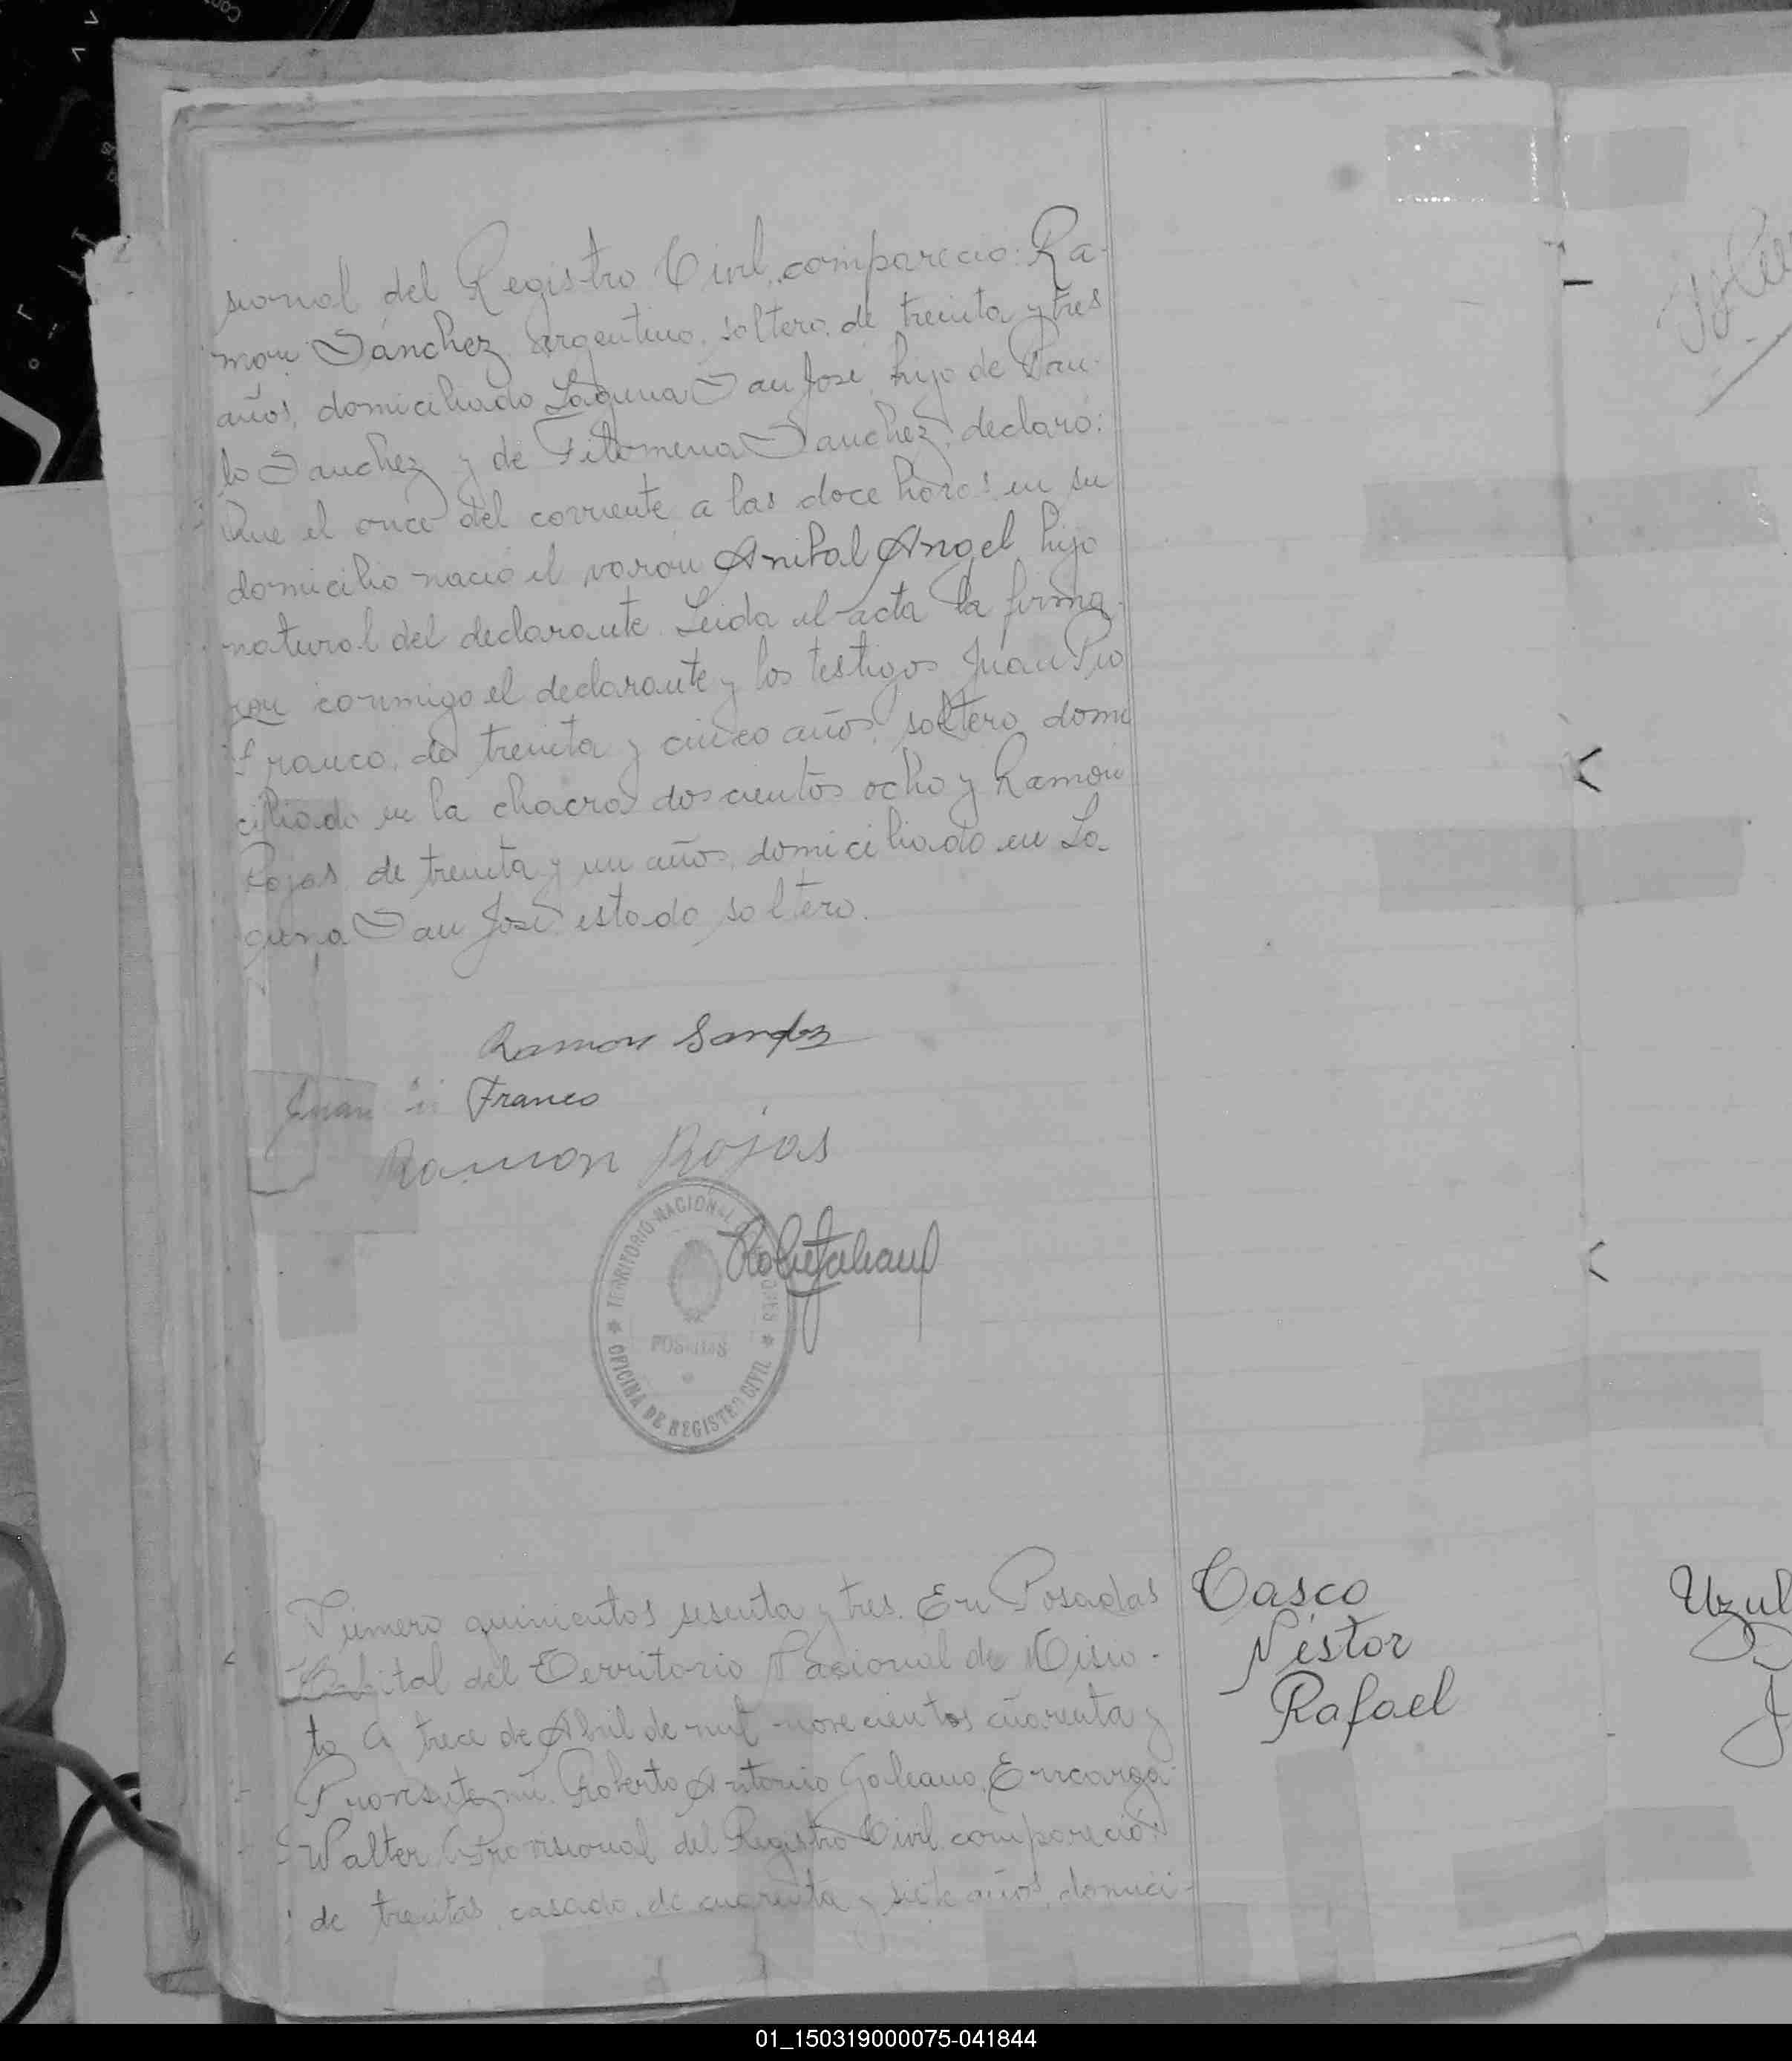 sional del Registro Civil, comparecio: Ra-
mon Sánchez, argentino, soltero, de treinta y tres
años, domiciliado Laguna San José, hijo de Pau-
lo Sanchez y de Filomena Sanchez, declaró:
Que el once del corriente a las doce horas en su
domicilio nació el varon Anibal Angel hijo
natural del declarante. Leida el acta la firma-
ron conmigo el declarante y los testigos Juan Pio
Franco, de treinta y cinco años, soltero, domi
ciliado en la chacra doscientos ocho y Ramón
Rojas de treinta y un años, domiciliado en La
guna San José estado soltero.
Ramon Sanchez
Juan Franco
Ramon Rojas
TERRITORIO NACIONAL
POSADAS
OFICINA DE REGISTRO CIVIL
Número quinientos sesenta y tres. En Posadas
Capital del Territorio Nacional de Misio-
to a trece de Abril de mil novecientos cuarenta y
mi Roberto Antonio Galeano, Encarga-
Walter Provisional del Registro Civil compareció:
de treintas, casado, de cuarenta y siete años, domici-
Casco
Néstor
Rafael
Uzul
01_150319000075-041844